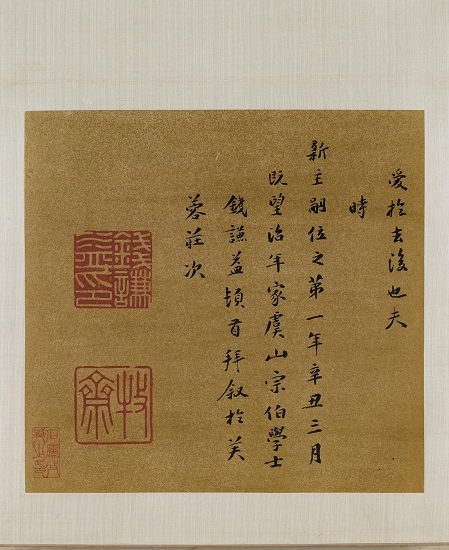 愛於去後也夫
時
新主嗣位之第一年辛丑三月
既望治年家虞山宗伯學士
錢謙益頓首拜叙於芙
蓉莊次
錢謙益印
牧齋